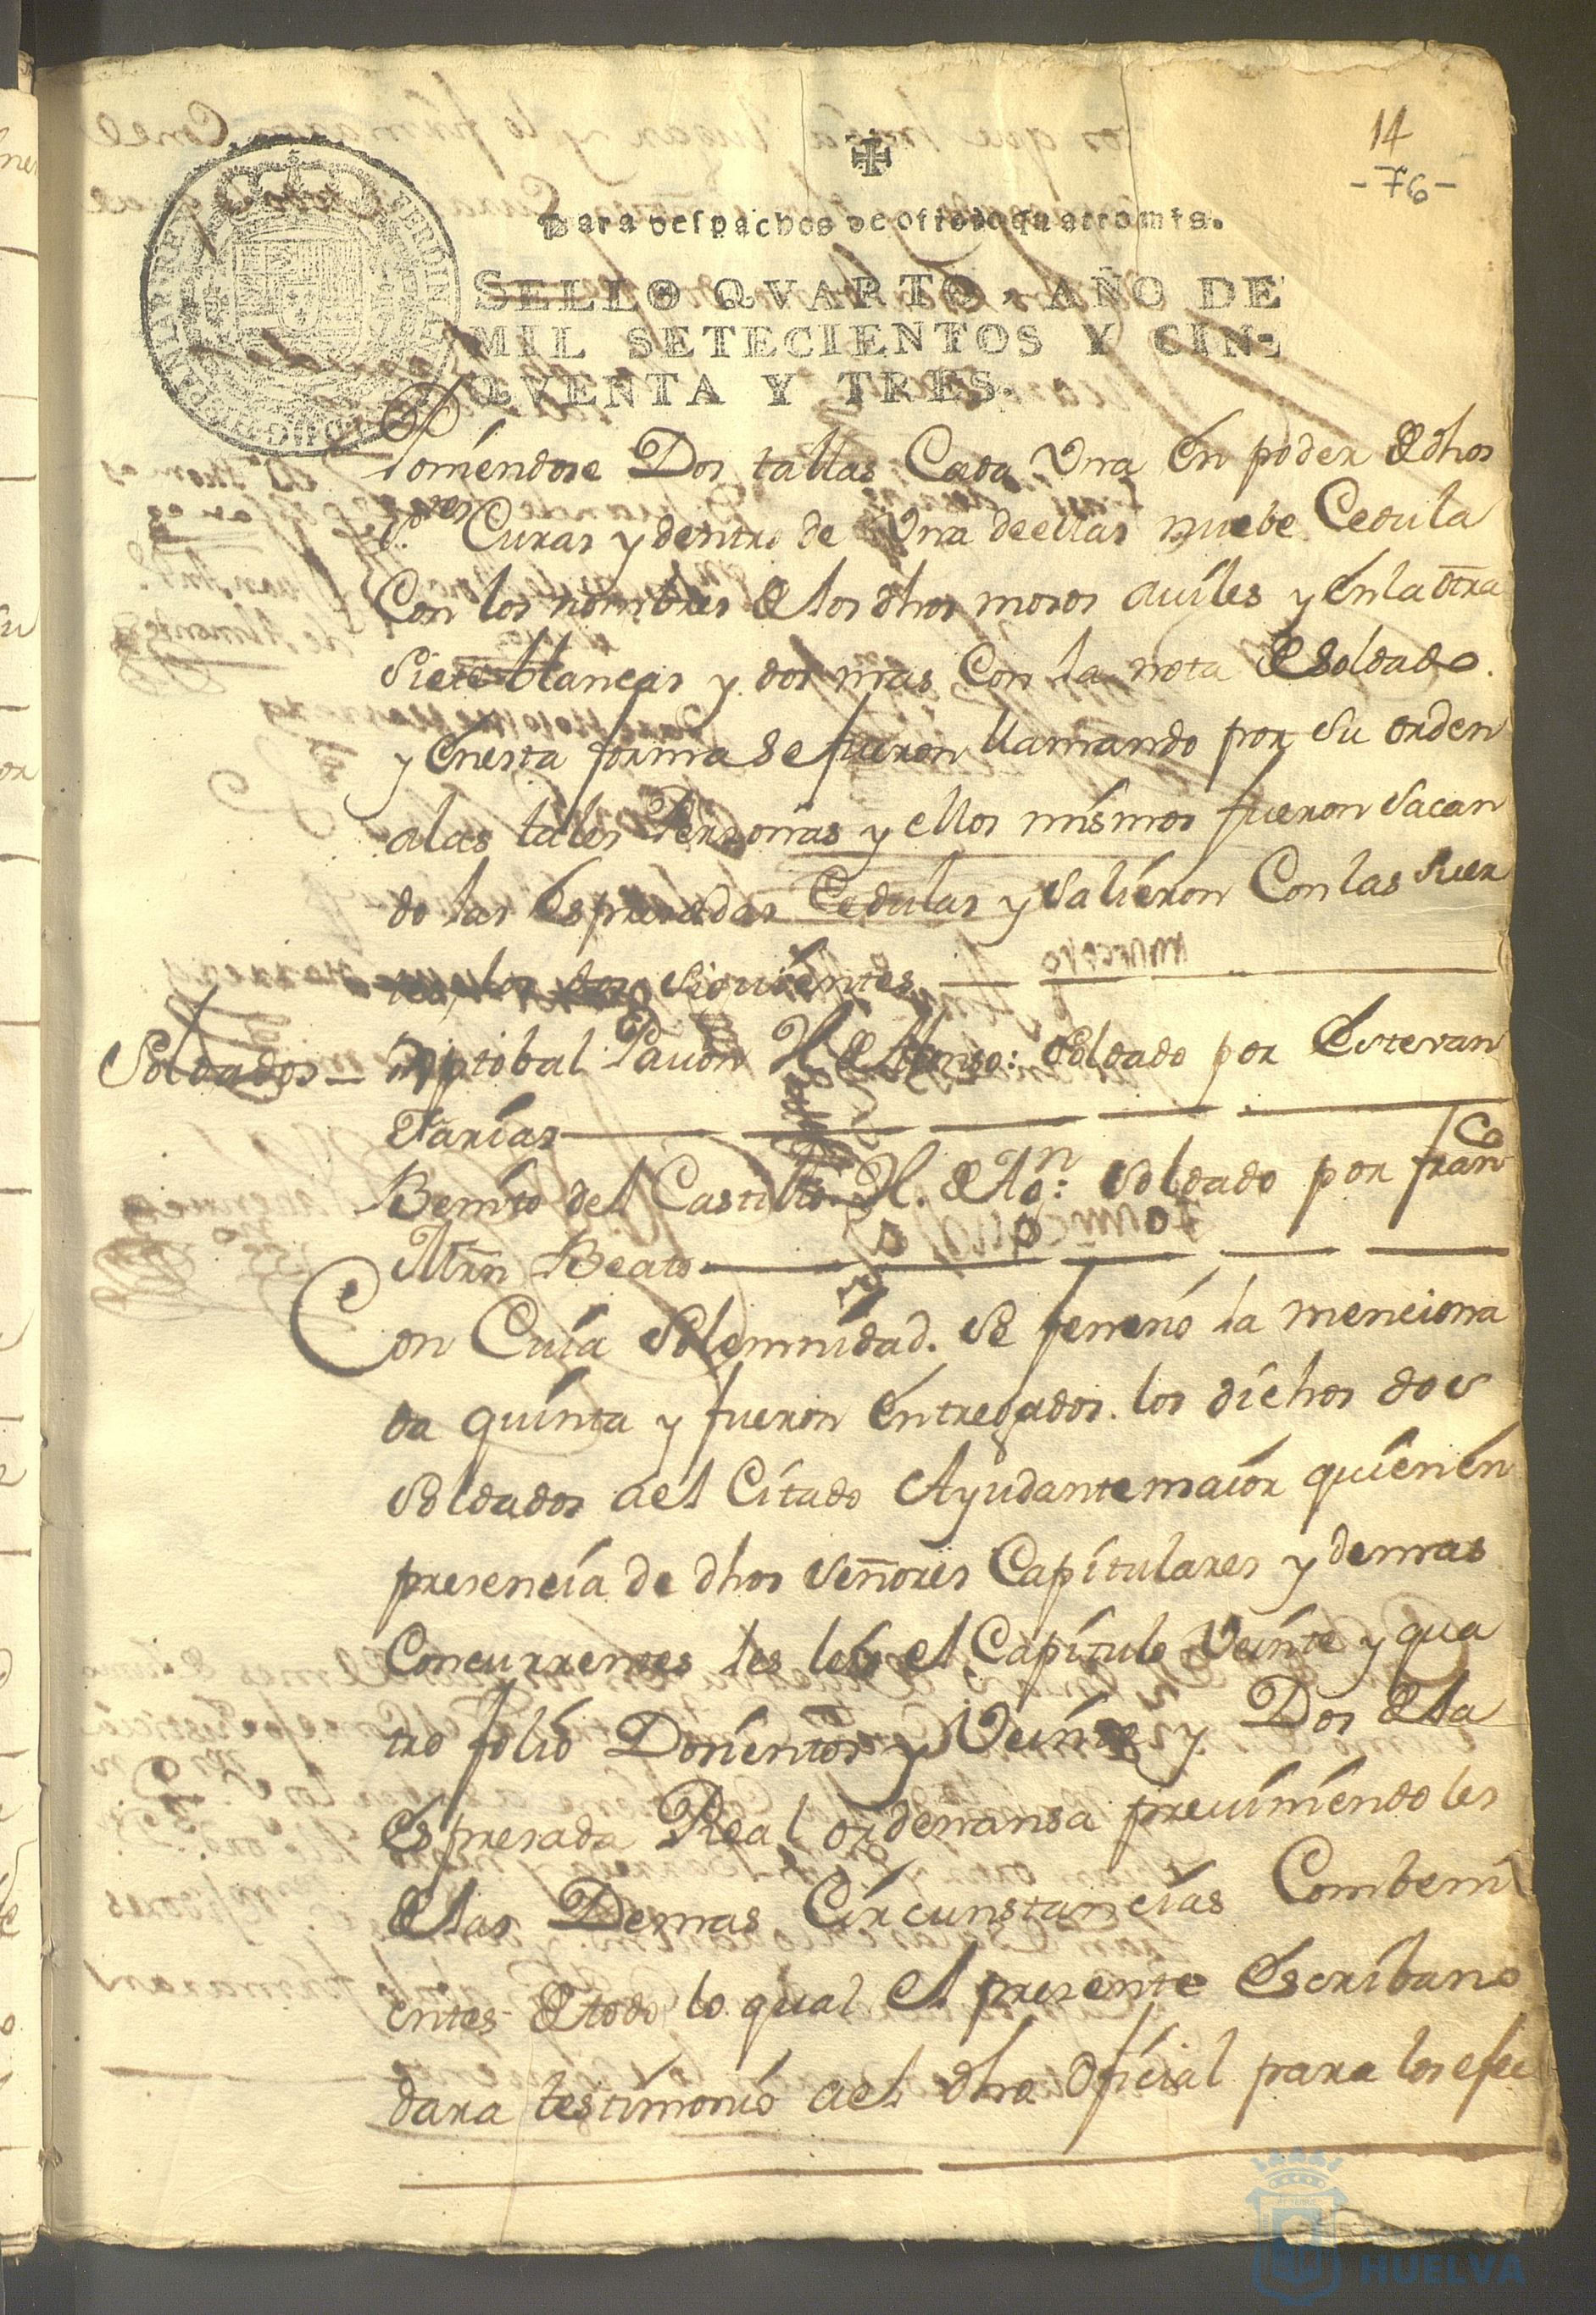 14
-76-
Para despachos de oficio quatro mrs.
SELLO QVARTO, AÑO DE
MIL SETECIENTOS Y CIN-
QVENTA Y TRES.
Poniendose Dos tallas Cada Vna en poder de dhos
S.res Curas y dentro de Vna de ellas nuebe Cedula
Con los nombres de los dhos mosos auiles y en la otra
Siete blancas y dos mas Con la nota de Soldado.
y en esta forma se fueron llamando por su orden
a las tales Personas y ellos mismos fueron sacan
do las espresadas Cedulas y salieron Con las suer
tes los dos siguientes
Soldados Xptobal Pauon H. de Alonso: Soldado por Estevan
Farias
Benito del Castillo H. de Anº: Soldado por Franco
Mrn Beato
Con Cuia Solemnidad. se feneció la menciona
da quinta y fueron entregados los dichos dos
soldados a el Citado Ayudante maior quien en
presencia de dhos señores Capitulares y demas
Concurrentes les leió el Capitulo Veinte y qua
tro folio Dosientos y Veinte y Dos de la
espresada Real ordenansa preuiniendoles
de las Demas Circunstancias Combeni
entes de todo lo qual el presente escribano
dara testimonio a el dho oficial para los efec
HUELVA